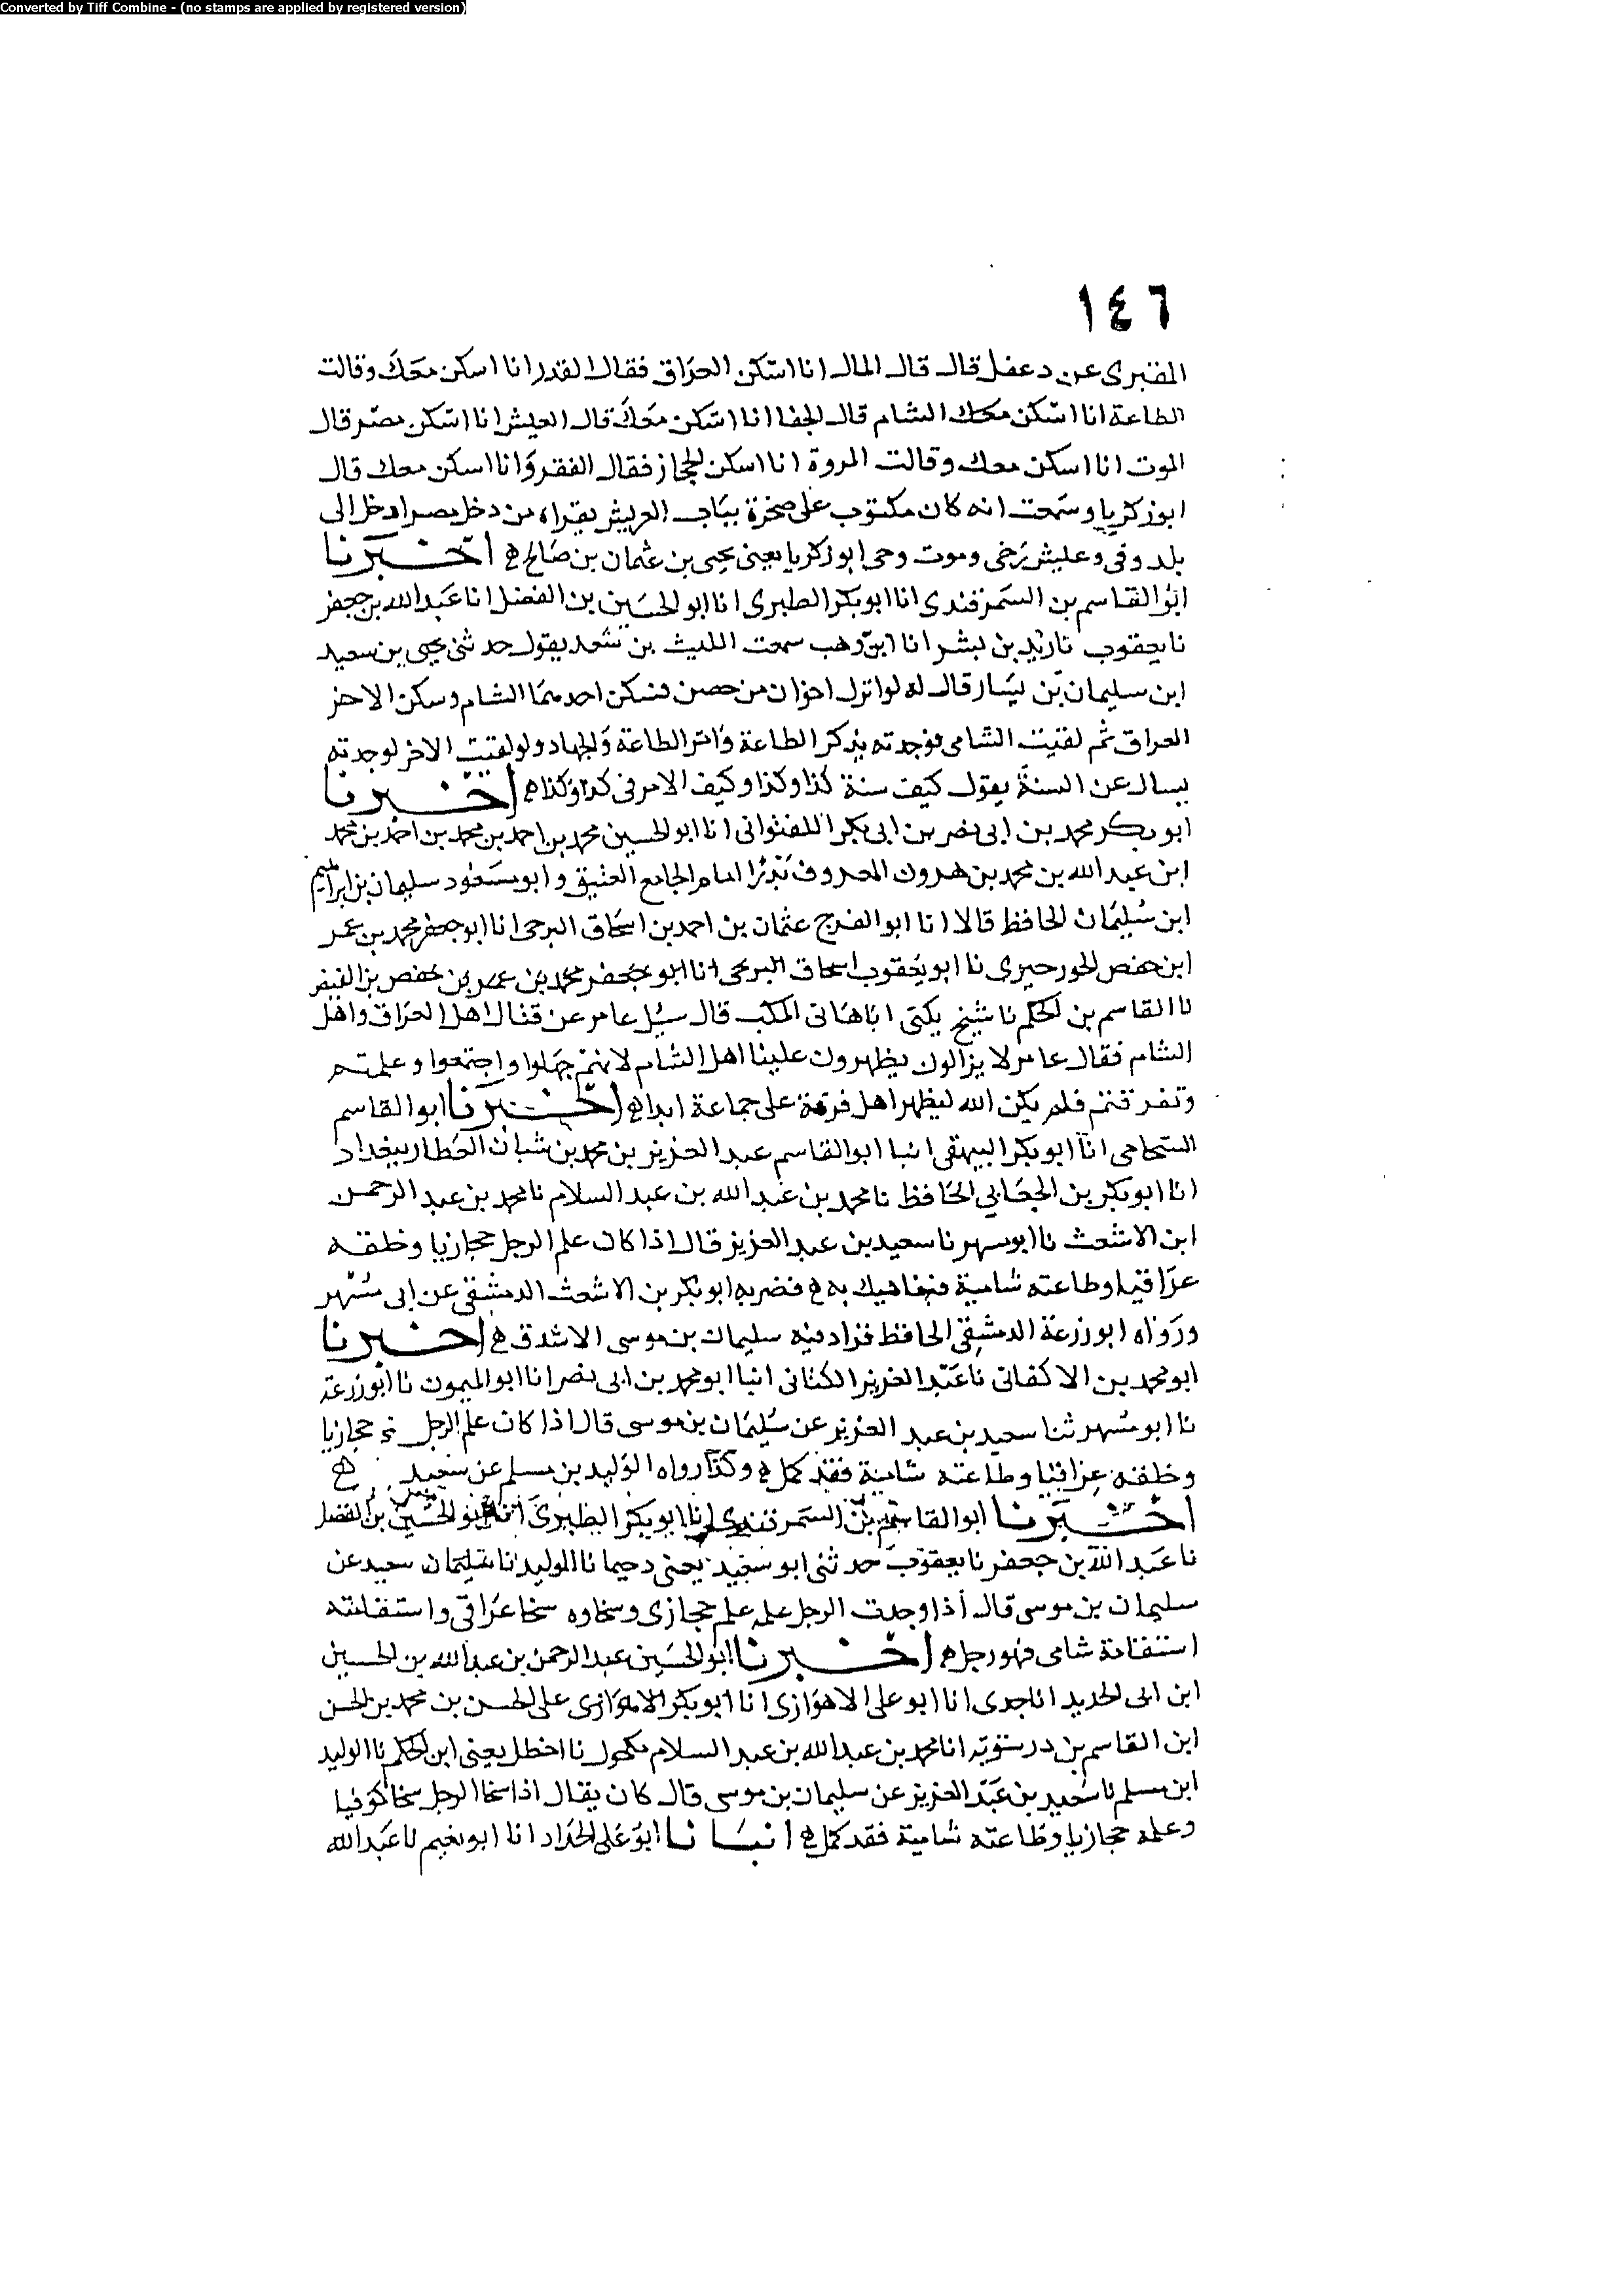 Converted by Tiff Combine - (no stamps are applied by registered version)
١٤٦
المقبرى عن دعفل قال قال المال انا اسكن العراق فقال القدر انا اسكن معك وقالت
الطاعة انا اسكن معك الشام قال الجفا انا اسكن معك قال العيش انا اسكن مصر قال
الموت انا اسكن معك وقالت المروة انا اسكن الحجاز فقال الفقر وانا اسكن معك قال
ابو زكريا وسمعت انه كان مكتوب على صخرة بباب العريش يقراه من دخل مصر ادخل الى
بلد وفى وعيش رخى وموت وحى ابو زكريا يعنى يحيى بن عثمان بن صالح ه اخبرنا
ابو القاسم بن السمرقندى انا ابو بكر الطبرى انا ابو الحسين بن الفضل انا عبد الله بن جعفر
نا يعقوب نا زيد بن بشر انا ابن وهب سمعت الليث بن سعد يقول حدثنى يحيى بن سعيد
ابن سليمان بن يسار قال له لو انزل اخوان من حصن فسكن احدهما الشام وسكن الاخر
العراق ثم لقيت الشامى فوجدته يذكر الطاعة وامر الطاعة والجهاد ولو لقيت الاخر لوجدته
يسال عن السنة يقول كيف سنة كذا وكذا وكيف الامر فى كذا وكذا ه اخبرنا
ابو بكر محمد بن ابى نصر بن ابى بكر اللفتوانى انا ابو الحسين محمد بن احمد بن محمد بن احمد بن محمد
ابن عبد الله بن محمد بن هرون المعروف امام الجامع العتيق وابو مسعود سليمان بن ابراهيم
ابن سليمان الحافظ قالا انا ابو الفرج عثمان بن احمد بن اسحاق البرجى انا ابو جعفر محمد بن عمر
ابن حفص الجورجيرى نا ابو يعقوب اسحاق البرجى انا ابو جعفر محمد بن عمر بن حفص بن الفيض
نا القاسم بن الحكم نا شيخ يكنى ابا هانى المكتب قال سيل عامر عن قتال اهل العراق واهل
الشام فقال عامر لا يزالون يظهرون علينا اهل الشام لانهم جهلوا واجتمعوا وعلمتم
وتفرقتم فلم يكن الله ليظهر اهل فرقة على جماعة ابدا ه اخبرنا ابو القاسم
الشحامى انا ابو بكر البيهقى انبا ابو القاسم عبد العزيز بن محمد بن شبان العطار ببغداد
انا ابو بكر بن الجعابي الحافظ نا محمد بن عبد الله بن عبد السلام نا محمد بن عبد الرحمن
ابن الاشعث نا ابو مسهر نا سعيد بن عبد العزيز قال اذا كان علم الرجل حجازيا وخلقه
عراقيا وطاعته شامية فناهيك به ه فضر به ابو بكر بن الاشعث الدمشقى عن ابى مسهر
ورواه ابو زرعة الدمشقى الحافظ فزاد فيه سليمان بن موسى الاشدق ه اخبرنا
ابو محمد بن الاكفانى نا عبد العزيز الكتانى انبا ابو محمد بن ابى نصر انا ابو الميمون نا ابو زرعة
نا ابو مسهر ثنا سعيد بن عبد العزيز عن سليمان بن موسى قال اذا كان علم الرجل حجازيا
وخلقه عراقيا وطاعته شامية فقد كمل ه وكذا رواه الوليد بن مسلم عن سعيد ه
اخبرنا ابو القاسم بن السمرقندى انا ابو بكر الطبرى انا ابو الحسين بن الفضل
نا عبد الله بن جعفر نا يعقوب حدثنى ابو سعيد يعنى دحيما نا الوليد نا سليمان سعيد عن
سليمان بن موسى قال اذا وجدت الرجل علمه علم حجازى وسخاوه سخا عراقى واستقامته
استقامة شامى فهو رجل ه اخبرنا ابو الحسين عبد الرحمن بن عبد الله بن الحسين
ابن ابى الحديد انا جدى انا ابو على الاهوازى انا ابو بكر الاهوازى على الحسن بن محمد بن الحسن
ابن القاسم بن درستويه انا محمد بن عبد الله بن عبد السلام مكحول نا اخطل يعنى ابن الحكم نا الوليد
ابن مسلم نا سعيد بن عبد العزيز عن سليمان بن موسى قال كان يقال اذا سخا الرجل سخا كوفيا
وعلمه حجازيا وطاعته شامية فقد كمل ه انبانا ابو على الحداد انا ابو نعيم نا عبد الله